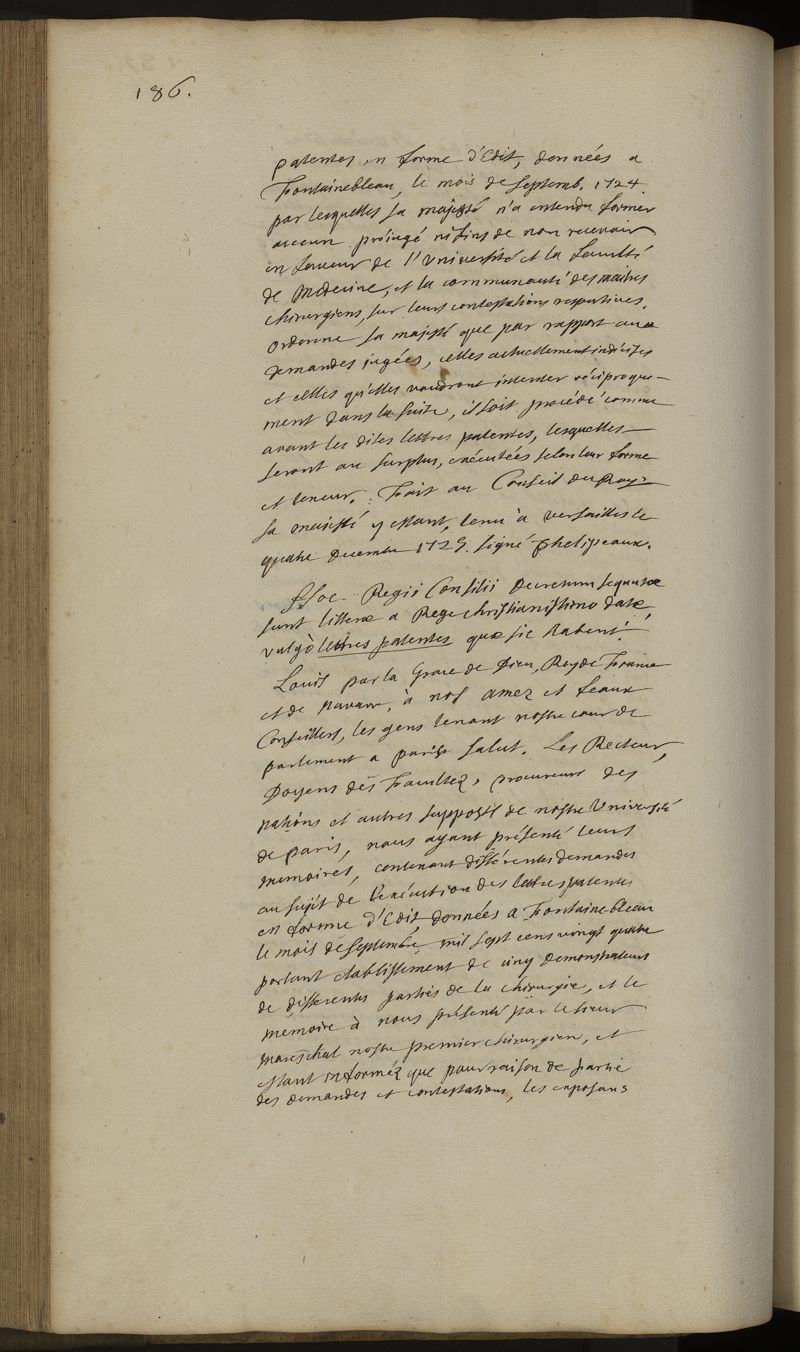 186.
patentes en forme d'Edit, données a
Fontainebleau, le mois de septemb. 1724.
par lesquelles sa majesté n'a entendu former
aucun préiugé ni fins de non recevoir
en faveur de l'Université et la faculté
de Medecine, et la communauté des maitres
chirurgiens, sur leurs contestations respectives.
ordonne sa majesté que par rapport aux
demandes iugées, celles actuellement indécises
et celles qu'elles voudront intenter réciproque-
ment dans la suite, il soit procédé comme
avant les dites lettres patentes, lesquelles
seront au surplus, exécutées selon leur forme
et teneur. Fait au Conseil du Roy,
sa maiesté y estant, tenu à versailles le
quatre decembre 1725. signé phelipeaux.
Hoc Regii Consilii Decretum sequutæ
sunt litteræ a Rege christianissimo datæ,
vulgò lettres patentes quæ sic habent.
Louis par la Grace de Dieu, Roy de France
et de navarre, à nos amez et feaux
Conseillers, les gens tenant nostre cour de
parlement a paris salut. Les Recteur,
Doyens des Facultez, procureurs des
nations et autres supposts de nostre Université
de paris, nous ayant présenté leurs
memoires, contenant différentes demandes
au sujet de l'exécution des lettres patentes
en forme d'Edit données a Fontainebleau
le mois de septembre mil sept cens vingt quatre
portant establissement de cinq demonstrateurs
de differentes parties de la chirurgie, et le
mémoire à nous présenté par le sieur
mareschal nostre premier chirurgien, et
estant informéz que pour raison de partie
des demandes et contestations, les exposans